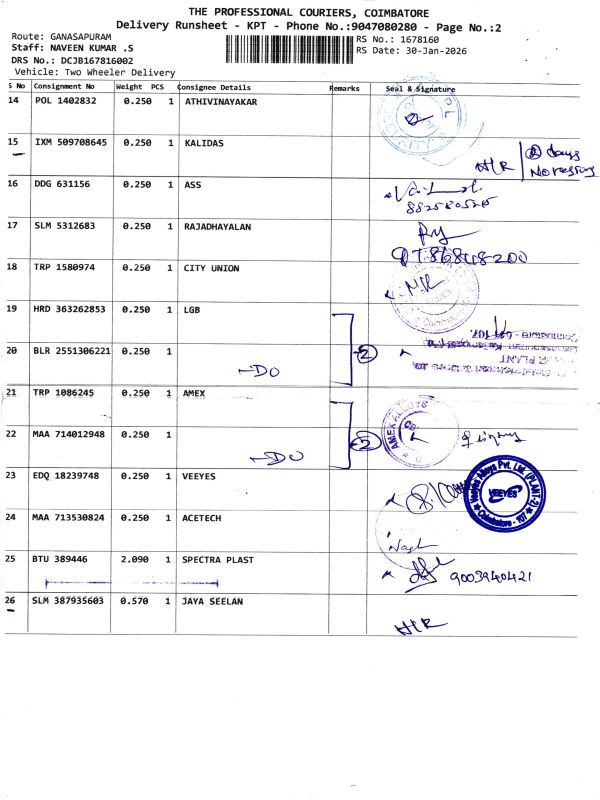 THE PROFESSIONAL COURIERS, COIMBATORE
Delivery Runsheet - KPT - Phone No.:9047080280 - Page No.:2
Route: GANASAPURAM
RS No.: 1678160
Staff: NAVEEN KUMAR .S
RS Date: 30-Jan-2026
DRS No.: DCJB167816002
Vehicle: Two Wheeler Delivery
S No Consignment No Weight PCS Consignee Details Remarks Seal & Signature
14 POL 1402832 0.250 1 ATHIVINAYAKAR
15 IXM 509708645 0.250 1 KALIDAS
H/R
16 DDG 631156 0.250 1 ASS
17 SLM 5312683 0.250 1 RAJADHAYALAN
18 TRP 1580974 0.250 1 CITY UNION
M.K
19 HRD 363262853 0.250 1 LGB
20 BLR 2551306221 0.250 1
-DO
2
PLANT
21 TRP 1086245 0.250 1 AMEX
AMEX ALLOYS
22 MAA 714012948 0.250 1
-DO
2
23 EDQ 18239748 0.250 1 VEEYES
Veeyes Alloys Pvt. Ltd. (PLANT-2)
VEEYES
Coimbatore - 107
24 MAA 713530824 0.250 1 ACETECH
25 BTU 389446 2.090 1 SPECTRA PLAST
9003940421
26 SLM 387935603 0.570 1 JAYA SEELAN
H/R